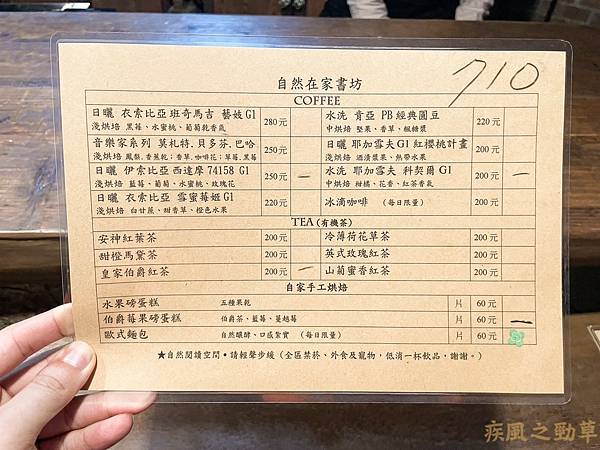 710
自然在家書坊
COFFEE
日曬 衣索比亞 班奇馬吉 藝妓 G1 280 元
淺烘焙 黑莓、水蜜桃、葡萄乾香氣
水洗 肯亞 PB 經典圓豆 220 元
中烘焙 堅果、香草、楓糖漿
音樂家系列 莫札特. 貝多芬. 巴哈 250 元
淺烘焙 鳳梨.香蕉乾;香草.咖啡花;草莓.黑莓
日曬 耶加雪夫 G1 紅櫻桃計畫 200 元
淺烘焙 酒漬漿果、熱帶水果
日曬 伊索比亞 西達摩 74158 G1 250 元 一
淺烘焙 藍莓、葡萄、水蜜桃、玫瑰花
水洗 耶加雪夫 科契爾 G1 200 元 一
中烘焙 柑橘、花香、紅茶香氣
日曬 衣索比亞 雪蜜莓姬 G1 220 元
淺烘焙 白甘蔗、甜香草、橙色水果
冰滴咖啡 (每日限量) 200 元
TEA (有機茶)
安神紅葉茶 200 元 冷薄荷花草茶 200 元
甜橙馬黛茶 200 元 英式玫瑰紅茶 200 元
皇家伯爵紅茶 200 元 一 山菊蜜香紅茶 200 元
自家手工烘焙
水果磅蛋糕 五種果乾 片 60 元
伯爵莓果磅蛋糕 伯爵茶、藍莓、蔓越莓 片 60 元 一
歐式麵包 自然醱酵、口感紮實 (每日限量) 片 60 元
★自然閱讀空間•請輕聲步緩(全區禁菸、外食及寵物,低消一杯飲品,謝謝。)
疾風之勁草